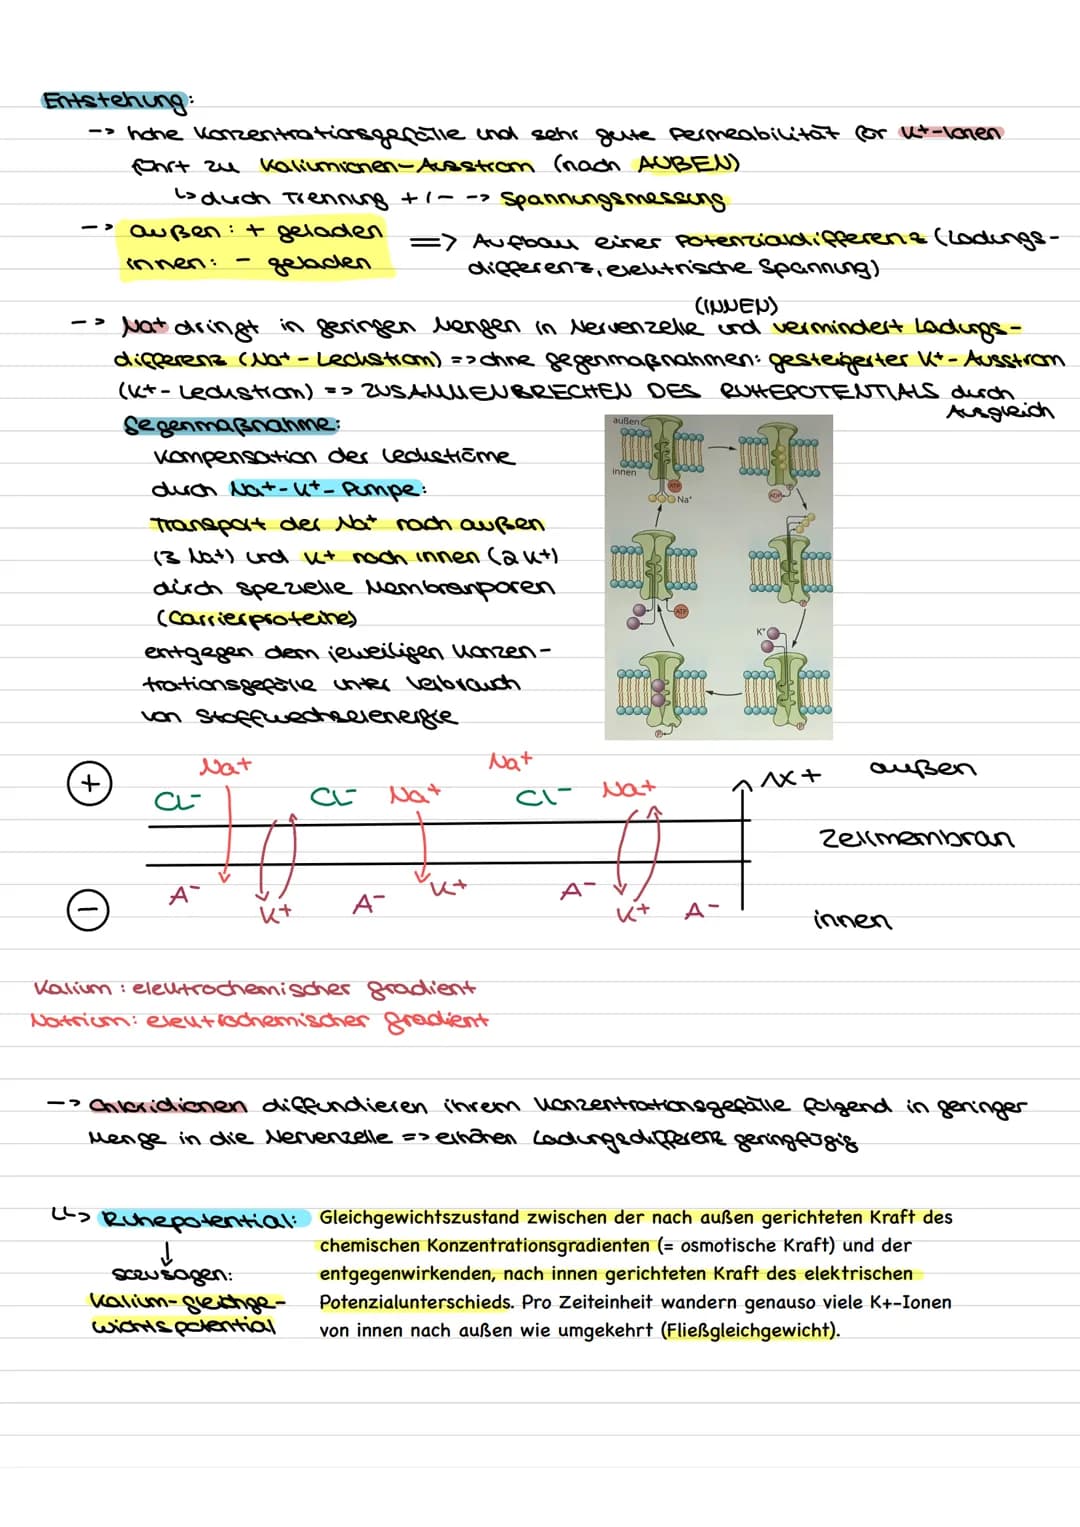 Entstehung:
--> hohe Konzentrationsgefälle und sehr gute Permeabilität für K+-Ionen
führt zu Kaliumionen-Ausstrom (nach AUßEN)
↳ durch Trennung +/- --> Spannungsmessung
--> außen: + geladen
innen: - geladen
=> Aufbau einer Potenzialdifferenz (Ladungs-
differenz, elektrische Spannung)
(INNEN)
--> Na+ dringt in geringen Mengen in Nervenzelle und vermindert Ladungs-
differenz (Na+-Leckstrom) => ohne Gegenmaßnahmen: gesteigerter K+-Ausstrom
(K+-Leckstrom) => ZUSAMMENBRECHEN DES RUHEPOTENTIALS durch
Ausgleich
Gegenmaßnahme:
Kompensation der Leckströme
durch Na+-K+-Pumpe:
Transport der Na+ nach außen
(3 Na+) und K+ nach innen (2 K+)
durch spezielle Membranporen
(Carrierproteine)
entgegen dem jeweiligen Konzen-
trationsgefälle unter Verbrauch
von Stoffwechselenergie
außen
innen
ATP
Na+
ADP
P
ATP
P
K+
P
P
Na+ Na+
+ Cl- Cl- Na+ Cl- Na+ 1x + außen
Zellmembran
- A- K+ A- K+ A- K+ A- innen
Kalium: elektrochemischer Gradient
Natrium: elektrochemischer Gradient
--> Chloridionen diffundieren ihrem Konzentrationsgefälle folgend in geringer
Menge in die Nervenzelle => erhöhen Ladungsdifferenz geringfügig
↳> Ruhepotential: Gleichgewichtszustand zwischen der nach außen gerichteten Kraft des
chemischen Konzentrationsgradienten (= osmotische Kraft) und der
sozusagen: entgegenwirkenden, nach innen gerichteten Kraft des elektrischen
Kalium-Gleichge- Potenzialunterschieds. Pro Zeiteinheit wandern genauso viele K+-Ionen
wichtspotential von innen nach außen wie umgekehrt (Fließgleichgewicht).